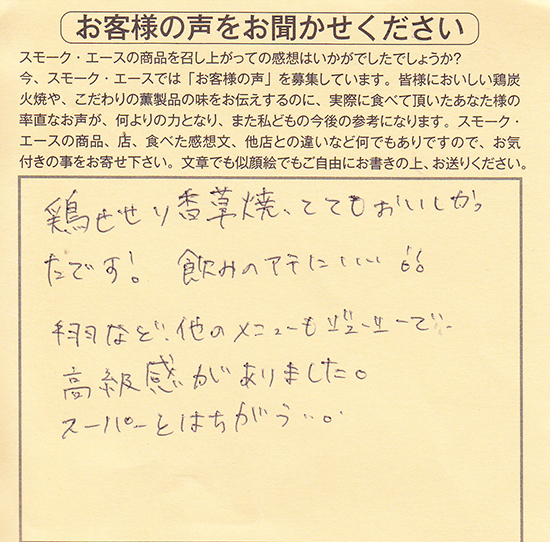 お客様の声をお聞かせください
スモーク・エースの商品を召し上がっての感想はいかがでしたでしょうか?
今、スモーク・エースでは「お客様の声」を募集しています。皆様においしい鶏炭
火焼や、こだわりの薫製品の味をお伝えするのに、実際に食べて頂いたあなた様の
率直なお声が、何よりの力となり、また私どもの今後の参考になります。スモーク・
エースの商品、店、食べた感想文、他店との違いなど何でもありですので、お気
付きの事をお寄せ下さい。文章でも似顔絵でもご自由にお書きの上、お送りください。
鶏せせり香草焼、とてもおいしかっ
たです! 飲みのアテにいい
など、他のメニューもジューシーで
高級感がありました。
スーパーとはちがう…。